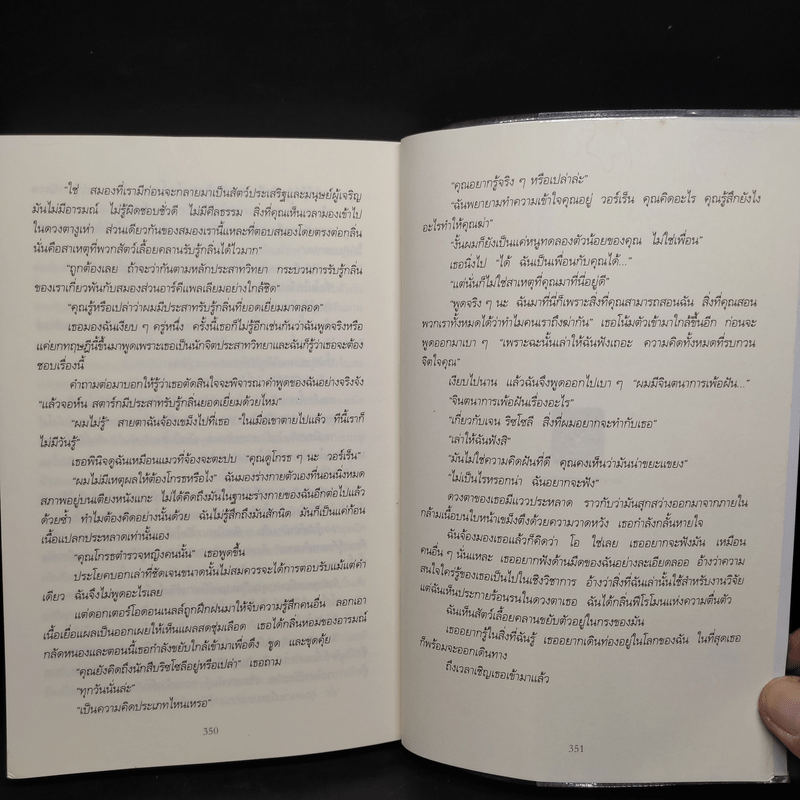 “ใช่ สมองที่เรามีก่อนจะกลายมาเป็นสัตว์ประเสริฐและมนุษย์ผู้เจริญ
มันไม่มีอารมณ์ ไม่รู้ผิดชอบชั่วดี ไม่มีศีลธรรม สิ่งที่คุณเห็นเวลามองเข้าไป
ในดวงตางูเห่า ส่วนเดียวกันของสมองเรานี้แหละที่ตอบสนองโดยตรงต่อกลิ่น
นั่นคือสาเหตุที่พวกสัตว์เลื้อยคลานรับรู้กลิ่นได้ไวมาก”
“ถูกต้องเลย ถ้าจะว่ากันตามหลักประสาทวิทยา กระบวนการรับรู้กลิ่น
ของเราเกี่ยวพันกับสมองส่วนอาร์คีแพลเลียมอย่างใกล้ชิด”
“คุณรู้หรือเปล่าว่าผมมีประสาทรับรู้กลิ่นที่ยอดเยี่ยมมาตลอด”
เธอมองฉันเงียบ ๆ ครู่หนึ่ง ครั้งนี้เธอก็ไม่รู้อีกเช่นกันว่าฉันพูดจริงหรือ
แค่ยกทฤษฎีนี้ขึ้นมาพูดเพราะเธอเป็นนักจิตประสาทวิทยาและฉันก็รู้ว่าเธอจะต้อง
ชอบเรื่องนี้
คำถามต่อมาบอกให้รู้ว่าเธอตัดสินใจจะพิจารณาคำพูดของฉันอย่างจริงจัง
“แล้วจอห์น สตาร์กมีประสาทรับรู้กลิ่นยอดเยี่ยมด้วยไหม”
“ผมไม่รู้” สายตาฉันจ้องเขม็งไปที่เธอ “ในเมื่อเขาตายไปแล้ว ทีนี้เราก็
ไม่มีวันรู้”
เธอพินิจดูฉันเหมือนแมวที่จ้องจะตะปบ “คุณดูโกรธ ๆ นะ วอร์เร็น”
“ผมไม่มีเหตุผลให้ต้องโกรธหรือไง” ฉันมองร่างกายตัวเองที่นอนนิ่งหมด
สภาพอยู่บนเตียงหนังแกะ ไม่ได้คิดถึงมันในฐานะร่างกายของฉันอีกต่อไปแล้ว
ด้วยซ้ำ ทำไมต้องคิดอย่างนั้นด้วย ฉันไม่รู้สึกถึงมันสักนิด มันก็เป็นแค่ก้อน
เนื้อแปลกประหลาดเท่านั้นเอง
“คุณโกรธตำรวจหญิงคนนั้น” เธอพูดขึ้น
ประโยคบอกเล่าที่ชัดเจนขนาดนั้นไม่สมควรจะได้การตอบรับแม้แต่คำ
เดียว ฉันจึงไม่พูดอะไรเลย
แต่ดอกเตอร์โอดอนเนลล์ถูกฝึกฝนมาให้จับความรู้สึกคนอื่น ลอกเอา
เนื้อเยื่อแผลเป็นออกเผยให้เห็นแผลสดชุ่มเลือด เธอได้กลิ่นหอมของอารมณ์
กลัดหนองและตอนนี้เธอกำลังขยับใกล้เข้ามาเพื่อดึง ขูด และขุดคุ้ย
“คุณยังคิดถึงนักสืบริซโซลีอยู่หรือเปล่า” เธอถาม
“ทุกวันนั่นล่ะ”
“เป็นความคิดประเภทไหนเหรอ”
350
“คุณอยากรู้จริง ๆ หรือเปล่าล่ะ”
“ฉันพยายามทำความเข้าใจคุณอยู่ วอร์เร็น คุณคิดอะไร คุณรู้สึกยังไง
อะไรทำให้คุณฆ่า”
“งั้นผมก็ยังเป็นแค่หนูทดลองตัวน้อยของคุณ ไม่ใช่เพื่อน”
เธอนิ่งไป “ได้ ฉันเป็นเพื่อนกับคุณได้...”
“แต่นั่นก็ไม่ใช่สาเหตุที่คุณมาที่นี่อยู่ดี”
“พูดจริง ๆ นะ ฉันมาที่นี่ก็เพราะสิ่งที่คุณสามารถสอนฉัน สิ่งที่คุณสอน
พวกเราทั้งหมดได้ว่าทำไมคนเราถึงฆ่ากัน” เธอโน้มตัวเข้ามาใกล้ขึ้นอีก ก่อนจะ
พูดออกมาเบา ๆ “เพราะฉะนั้นเล่าให้ฉันฟังเถอะ ความคิดทั้งหมดที่รบกวน
จิตใจคุณ”
เงียบไปนาน แล้วฉันจึงพูดออกไปเบา ๆ “ผมมีจินตนาการเพ้อฝัน...”
“จินตนาการเพ้อฝันเรื่องอะไร”
“เกี่ยวกับเจน ริซโซลี สิ่งที่ผมอยากจะทำกับเธอ”
“เล่าให้ฉันฟังสิ”
“มันไม่ใช่ความคิดฝันที่ดี คุณคงเห็นว่ามันน่าขยะแขยง”
“ไม่เป็นไรหรอกน่า ฉันอยากจะฟัง”
ดวงตาของเธอมีแววประหลาด ราวกับว่ามันสุกสว่างออกมาจากภายใน
กล้ามเนื้อบนใบหน้าเขม็งตึงด้วยความวาดหวัง เธอกำลังกลั้นหายใจ
ฉันจ้องมองเธอแล้วก็คิดว่า โอ ใช่เลย เธออยากจะฟังมัน เหมือน
คนอื่น ๆ นั่นแหละ เธออยากฟังด้านมืดของฉันอย่างละเอียดลออ อ้างว่าความ
สนใจใคร่รู้ของเธอเป็นไปในเชิงวิชาการ อ้างว่าสิ่งที่ฉันเล่านั้นใช้สำหรับงานวิจัย
แต่ฉันเห็นประกายร้อนรนในดวงตาเธอ ฉันได้กลิ่นฟีโรโมนแห่งความตื่นตัว
ฉันเห็นสัตว์เลื้อยคลานขยับตัวอยู่ในกรงของมัน
เธออยากรู้ในสิ่งที่ฉันรู้ เธออยากเดินท่องอยู่ในโลกของฉัน ในที่สุดเธอ
ก็พร้อมจะออกเดินทาง
ถึงเวลาเชิญเธอเข้ามาแล้ว
351